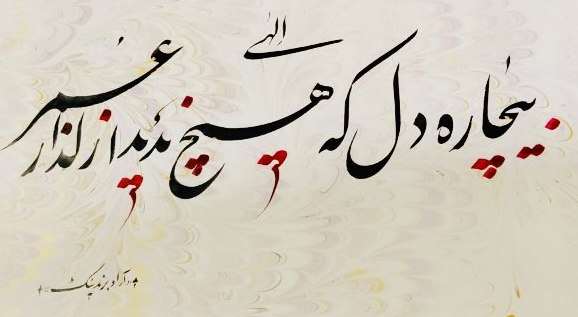 الهی
بیچاره دل که هیچ ندید از گذار عمر
آراد برندینگ